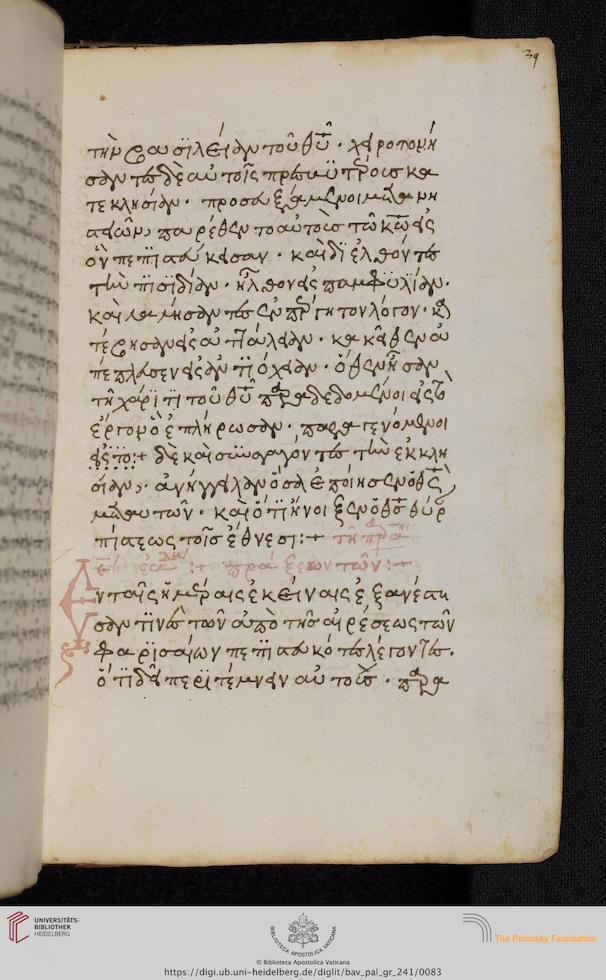 39
τὴν βασιλείαν τοῦ θῦ · χειροτονή
σαντες δὲ αὐτοῖς πρεσβυτέρους κα
τ ἐκκλησίαν · προσευξάμενοι μετα νη
στειῶν, παρέθεντο αὐτοὺς τῶ κω εἰς
ὃν πεπιστεύκασαν · καὶ διελθόντες
τὴν πισιδίαν · ἦλθον εἰς παμφυλίαν ·
καὶ λαλήσαντες ἐν πέργη τὸν λόγον · κα
τέβησαν εἰς ἀττάλειαν · κακεῖθεν ἀ
πέπλευσαν εἰς ἀντιόχειαν · ὅθεν ἦσαν
τῆ χάριτι τοῦ θῦ παραδεδομένοι εἰς τὸ
ἔργον ὃ ἐπλήρωσαν · παραγενόμενοι
δὲ καὶ συναγαγόντες τὴν ἐκκλη
σίαν, ἀνήγγειλαν ὅσα ἐποίησεν ὁ θς
μετ αυτῶν · καὶ ὅτι ἤνοιξεν ὁ θς θύρ
πίστεως τοῖς ἔθνεσι :+
πράξεων τῶν :+
Εν ταῖς ἡμέραις ἐκείναις ἐξανέστη
σαν τινὲς τῶν ἀπὸ τῆς αἱρέσεως τῶν
φαρισαίων πεπιστευκότες λέγοντες ·
ὅτι δεῖ περιτέμνειν αὐτοὺς · παρα
UNIVERSITÄTS-
BIBLIOTHEK
HEIDELBERG
BIBLIOTECA APOSTOLICA VATICANA
The Polonsky Foundation
© Biblioteca Apostolica Vaticana
https://digi.ub.uni-heidelberg.de/diglit/bav_pal_gr_241/0083